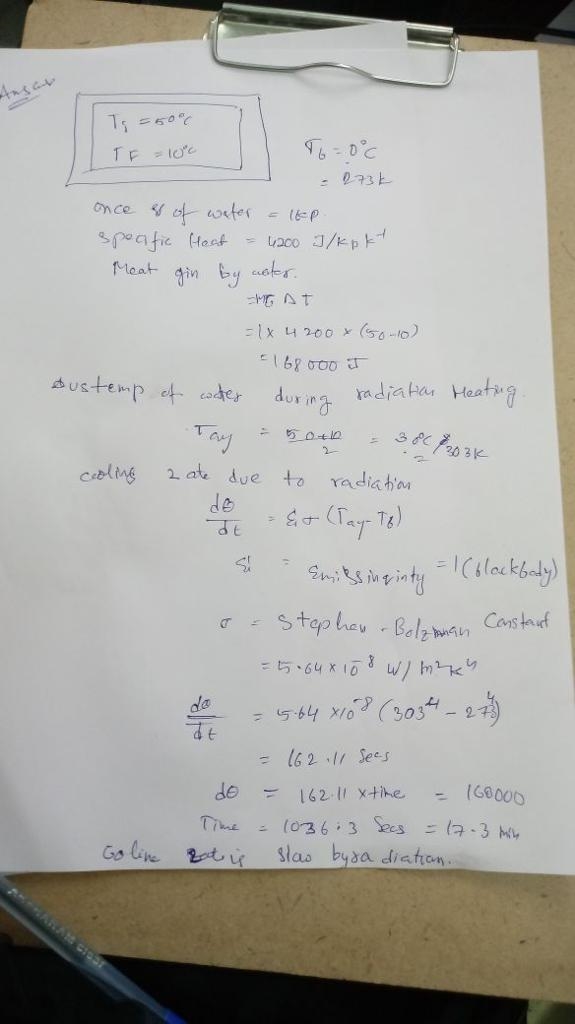 Answer
Ti = 50°C
TF = 10°C
Tb = 0°C
= 273k
once of water = 1kp.
specific Heat = 4200 J/kp k⁻¹
Meat gin by water.
= MC ΔT
= 1 x 4200 x (50-10)
= 168000 J
temp of water during radiation Heating.
Tay = 50+10/2 = 30°C / 303K
cooling rate due to radiation
dθ/dt = εσ (Tay - Tb)
ε = Emissivinty = 1 (blackbody)
σ = Stephen - Bolzmnan Constant
= 5.64 x 10⁻⁸ W/m²k⁴
dθ/dt = 5.64 x10⁻⁸ (303⁴ - 273⁴)
= 162.11 Secs
dθ = 162.11 x time = 168000
Time = 1036.3 Secs = 17.3 min
is slow by radiation.